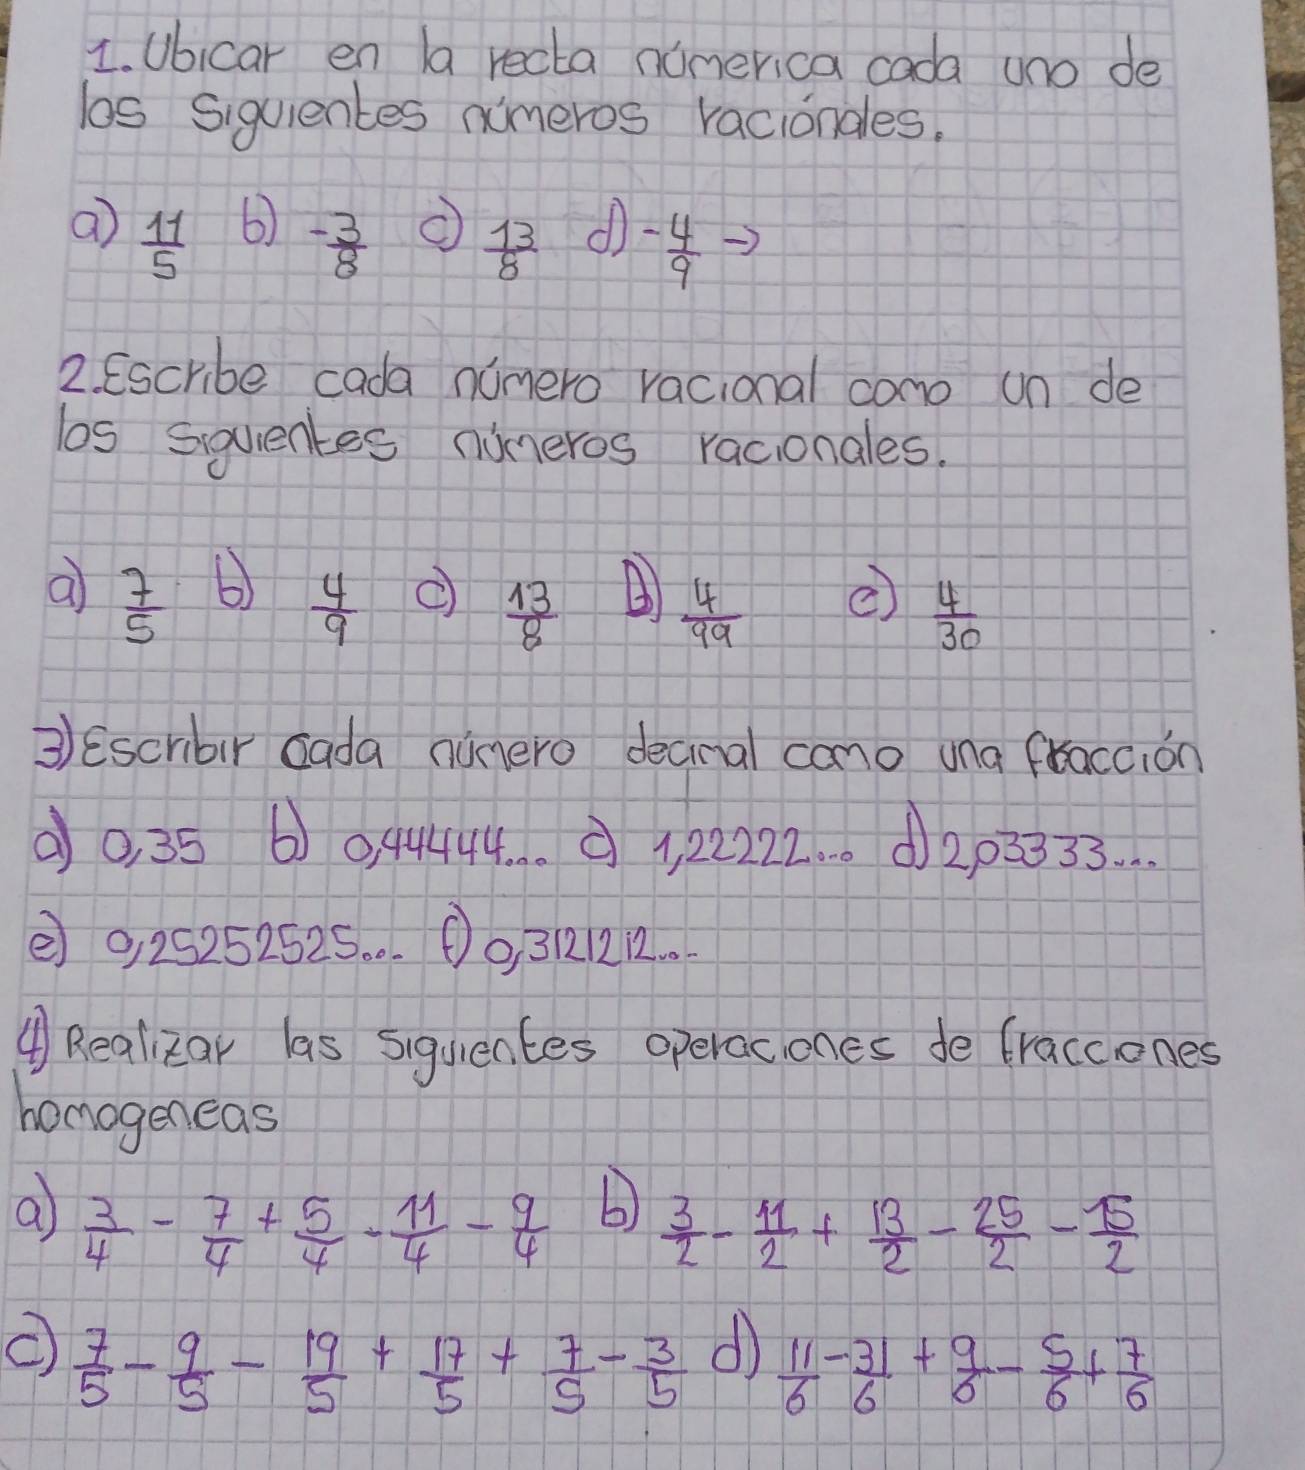 1. Ubicar en la recta númerica cada uno de
los siguientes números raciónales.
a) 11/5 b) -3/8 c) 13/8 d) -4/9 →
2. Escribe cada número racional como un de
los siguientes números racionales.
a) 7/5 b) 4/9 c) 13/8 D) 4/99 e) 4/30
3) Escribir cada número decimal como una fracción
a) 0,35 b) 0,44444... c) 1,22222... d) 2,03333...
e) 0,25252525... f) 0,3121212...
4) Realizar las siguientes operaciones de fracciones
homogeneas
a) 3/4 - 7/4 + 5/4 - 11/4 - 9/4 b) 3/2 - 11/2 + 13/2 - 25/2 - 15/2
c) 7/5 - 9/5 - 19/5 + 17/5 + 7/5 - 3/5 d) 11/6 - 31/6 + 9/6 - 5/6 + 7/6